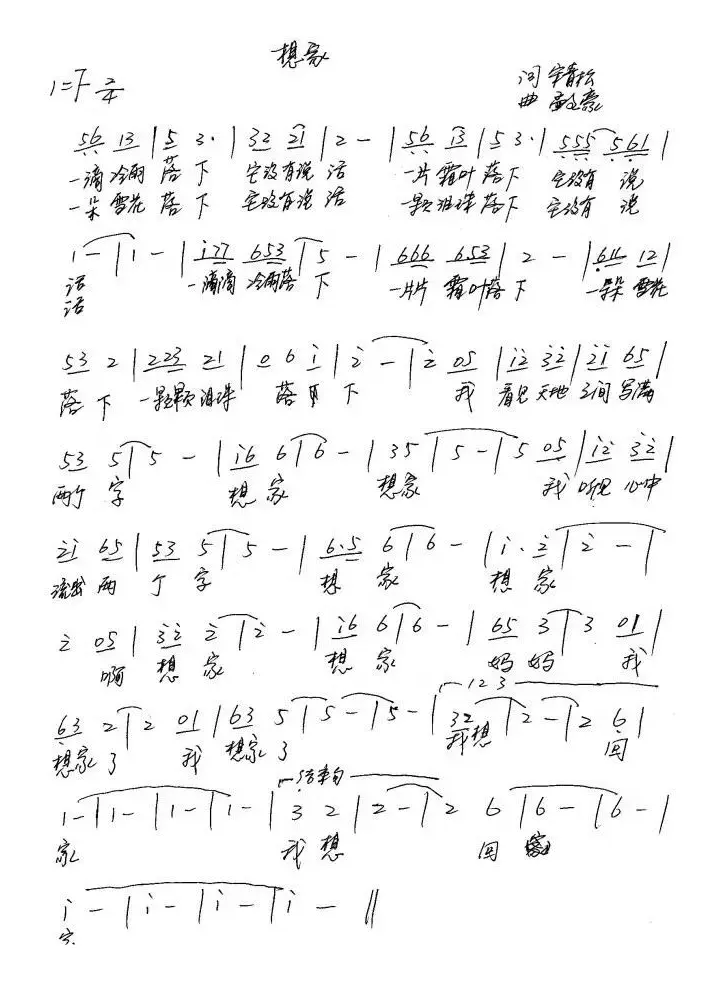 想家
1=F 2/4
词 宋青松
曲 孟文豪
56 13 | 5 3· | 32 21 | 2 - | 56 13 | 5 3· | 555 561 |
一滴 冷雨 落 下 它没有说 话 一片 霜叶 落 下 它没有 说
一朵 雪花 落 下 它没有说 话 一颗 泪珠 落 下 它没有 说
1 - | 1 - | i77 653 | 5 - | 666 653 | 2 - | 611 12 |
话 一滴滴 冷雨落 下 一片片 霜叶落 下 一朵朵 雪花
话
53 2 | 223 21 | 0 6 i | 2 - | 2 05 | i2 32 | 2i 65 |
落 下 一颗颗 泪珠 落 下 我 看见 天地 之间 写满
53 5 | 5 - | i6 6 | 6 - | 35 | 5 - | 5 05 | i2 32 |
两个 字 想 家 想家 我 听见 心中
2i 65 | 53 5 | 5 - | 6·5 6 | 6 - | i·2 | 2 - |
流出 两 个 字 想 家 想 家
2 05 | 32 2 | 2 - | i6 6 | 6 - | 65 3 | 3 01 |
啊 想 家 想 家 妈妈 我
1 2 3
63 2 | 2 01 | 63 5 | 5 - | 5 - | 32 | 2 - | 2 6 |
想家 了 我 想家 了 我想 回
结束句
1 - | 1 - | 1 - | 1 - | 3 2 | 2 - | 2 6 | 6 - | 6 - |
家 我 想 回
i - | i - | i - | i - ‖
家